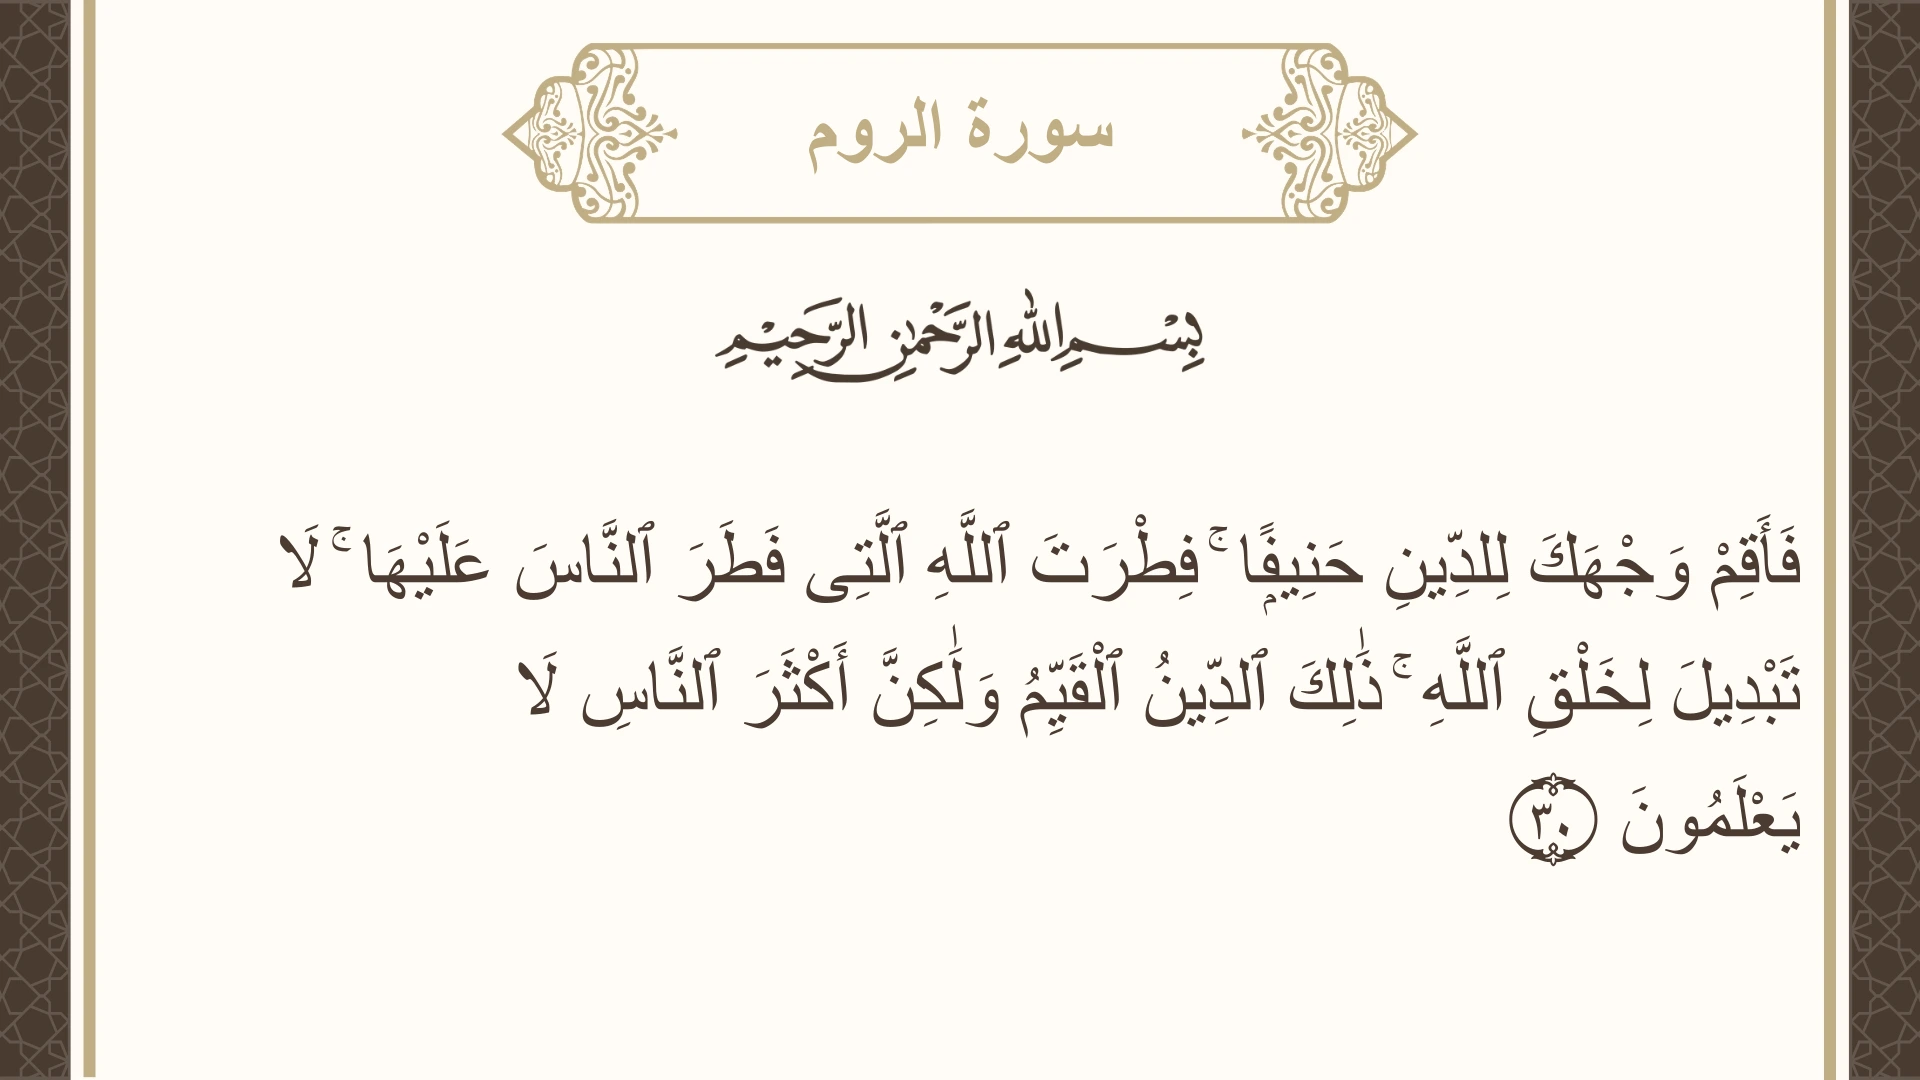 سورة الروم
بِسْمِ اللهِ الرَّحْمٰنِ الرَّحِيْمِ
فَأَقِمْ وَجْهَكَ لِلدِّينِ حَنِيفًۭا ۚ فِطْرَتَ ٱللَّهِ ٱلَّتِى فَطَرَ ٱلنَّاسَ عَلَيْهَا ۚ لَا
تَبْدِيلَ لِخَلْقِ ٱللَّهِ ۚ ذَٰلِكَ ٱلدِّينُ ٱلْقَيِّمُ وَلَٰكِنَّ أَكْثَرَ ٱلنَّاسِ لَا
يَعْلَمُونَ ٣٠